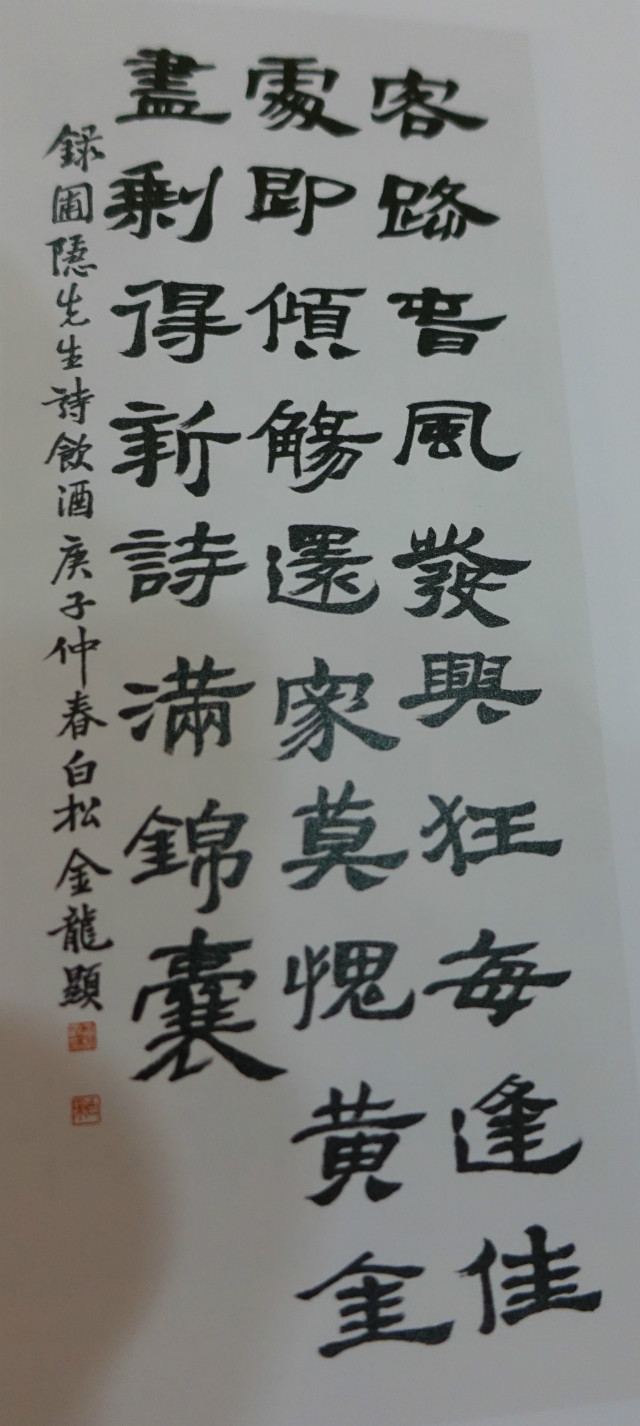 客路春風發興狂每逢佳
處即傾觴還家莫愧黃金
盡剩得新詩滿錦囊
錄圃隱先生詩飮酒庚子仲春白松金龍顯